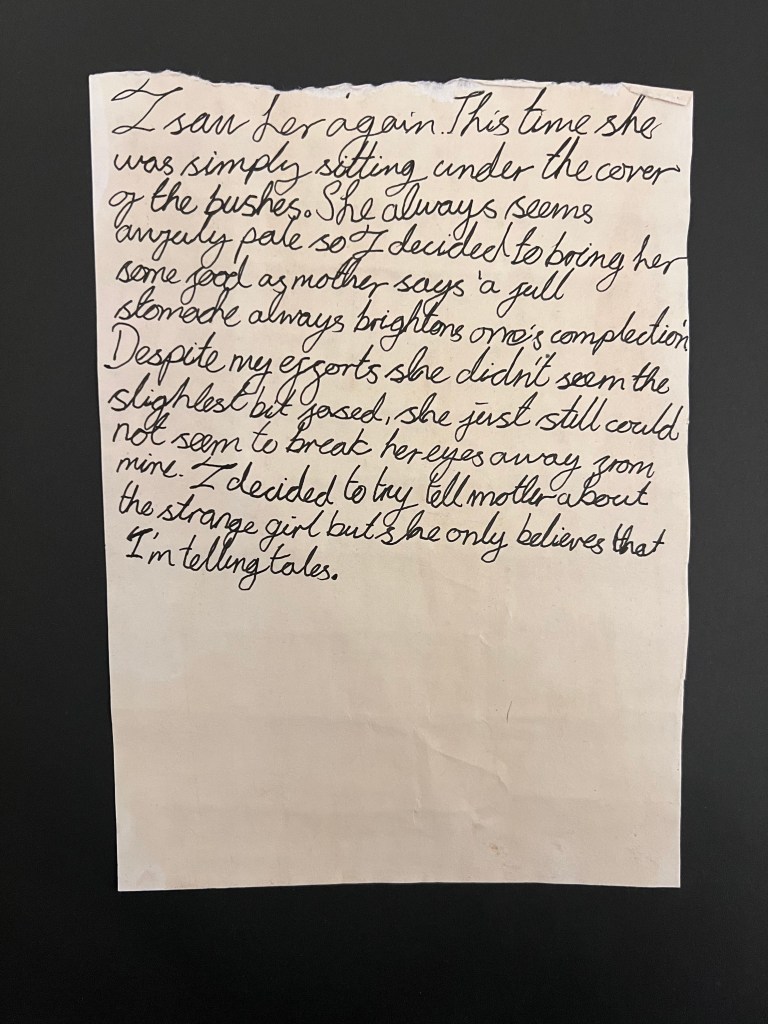 I saw her again. This time she
was simply sitting under the cover
of the bushes. She always seems
awfuly pale so I decided to bring her
some food as mother says 'a full
stomache always brightens one's complection
Despite my efforts she didn't seem the
slightest bit fased, she just still could
not seem to break her eyes away from
mine. I decided to try tell mother about
the strange girl but she only believes that
I'm telling tales.